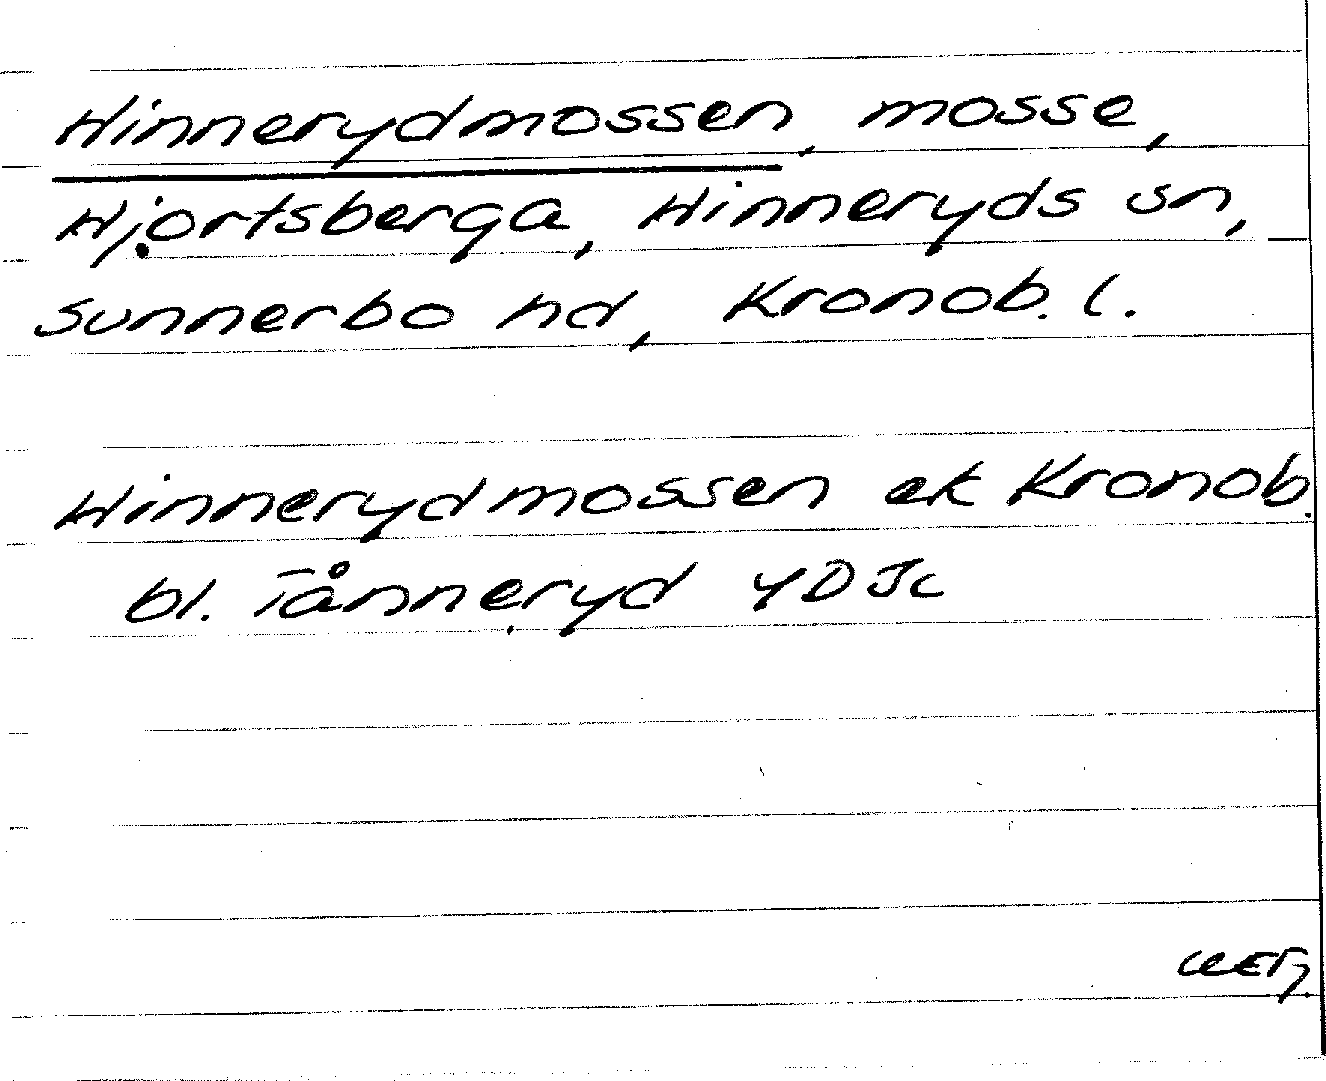 Hinnerydmossen, mosse,
Hjortsberga, Hinneryds sn,
Sunnerbo hd, Kronob. l.
Hinnerydmossen ek Kronob.
bl. Tånneryd 4D Jc